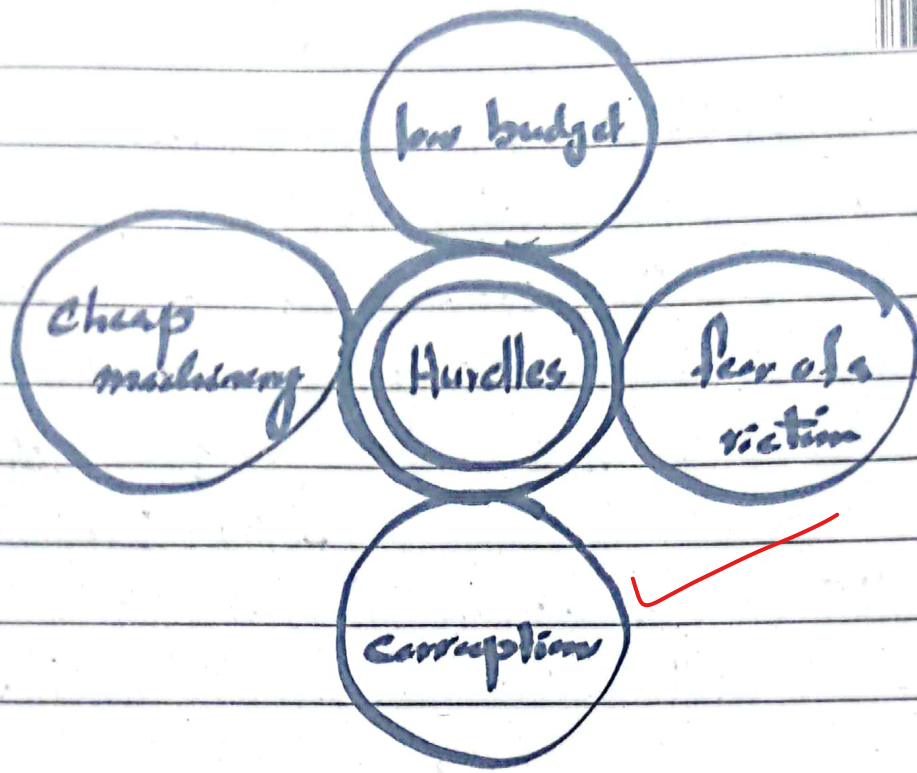 low budget
Cheap
machinery
Hurdles
fear of a
victim
Corruption